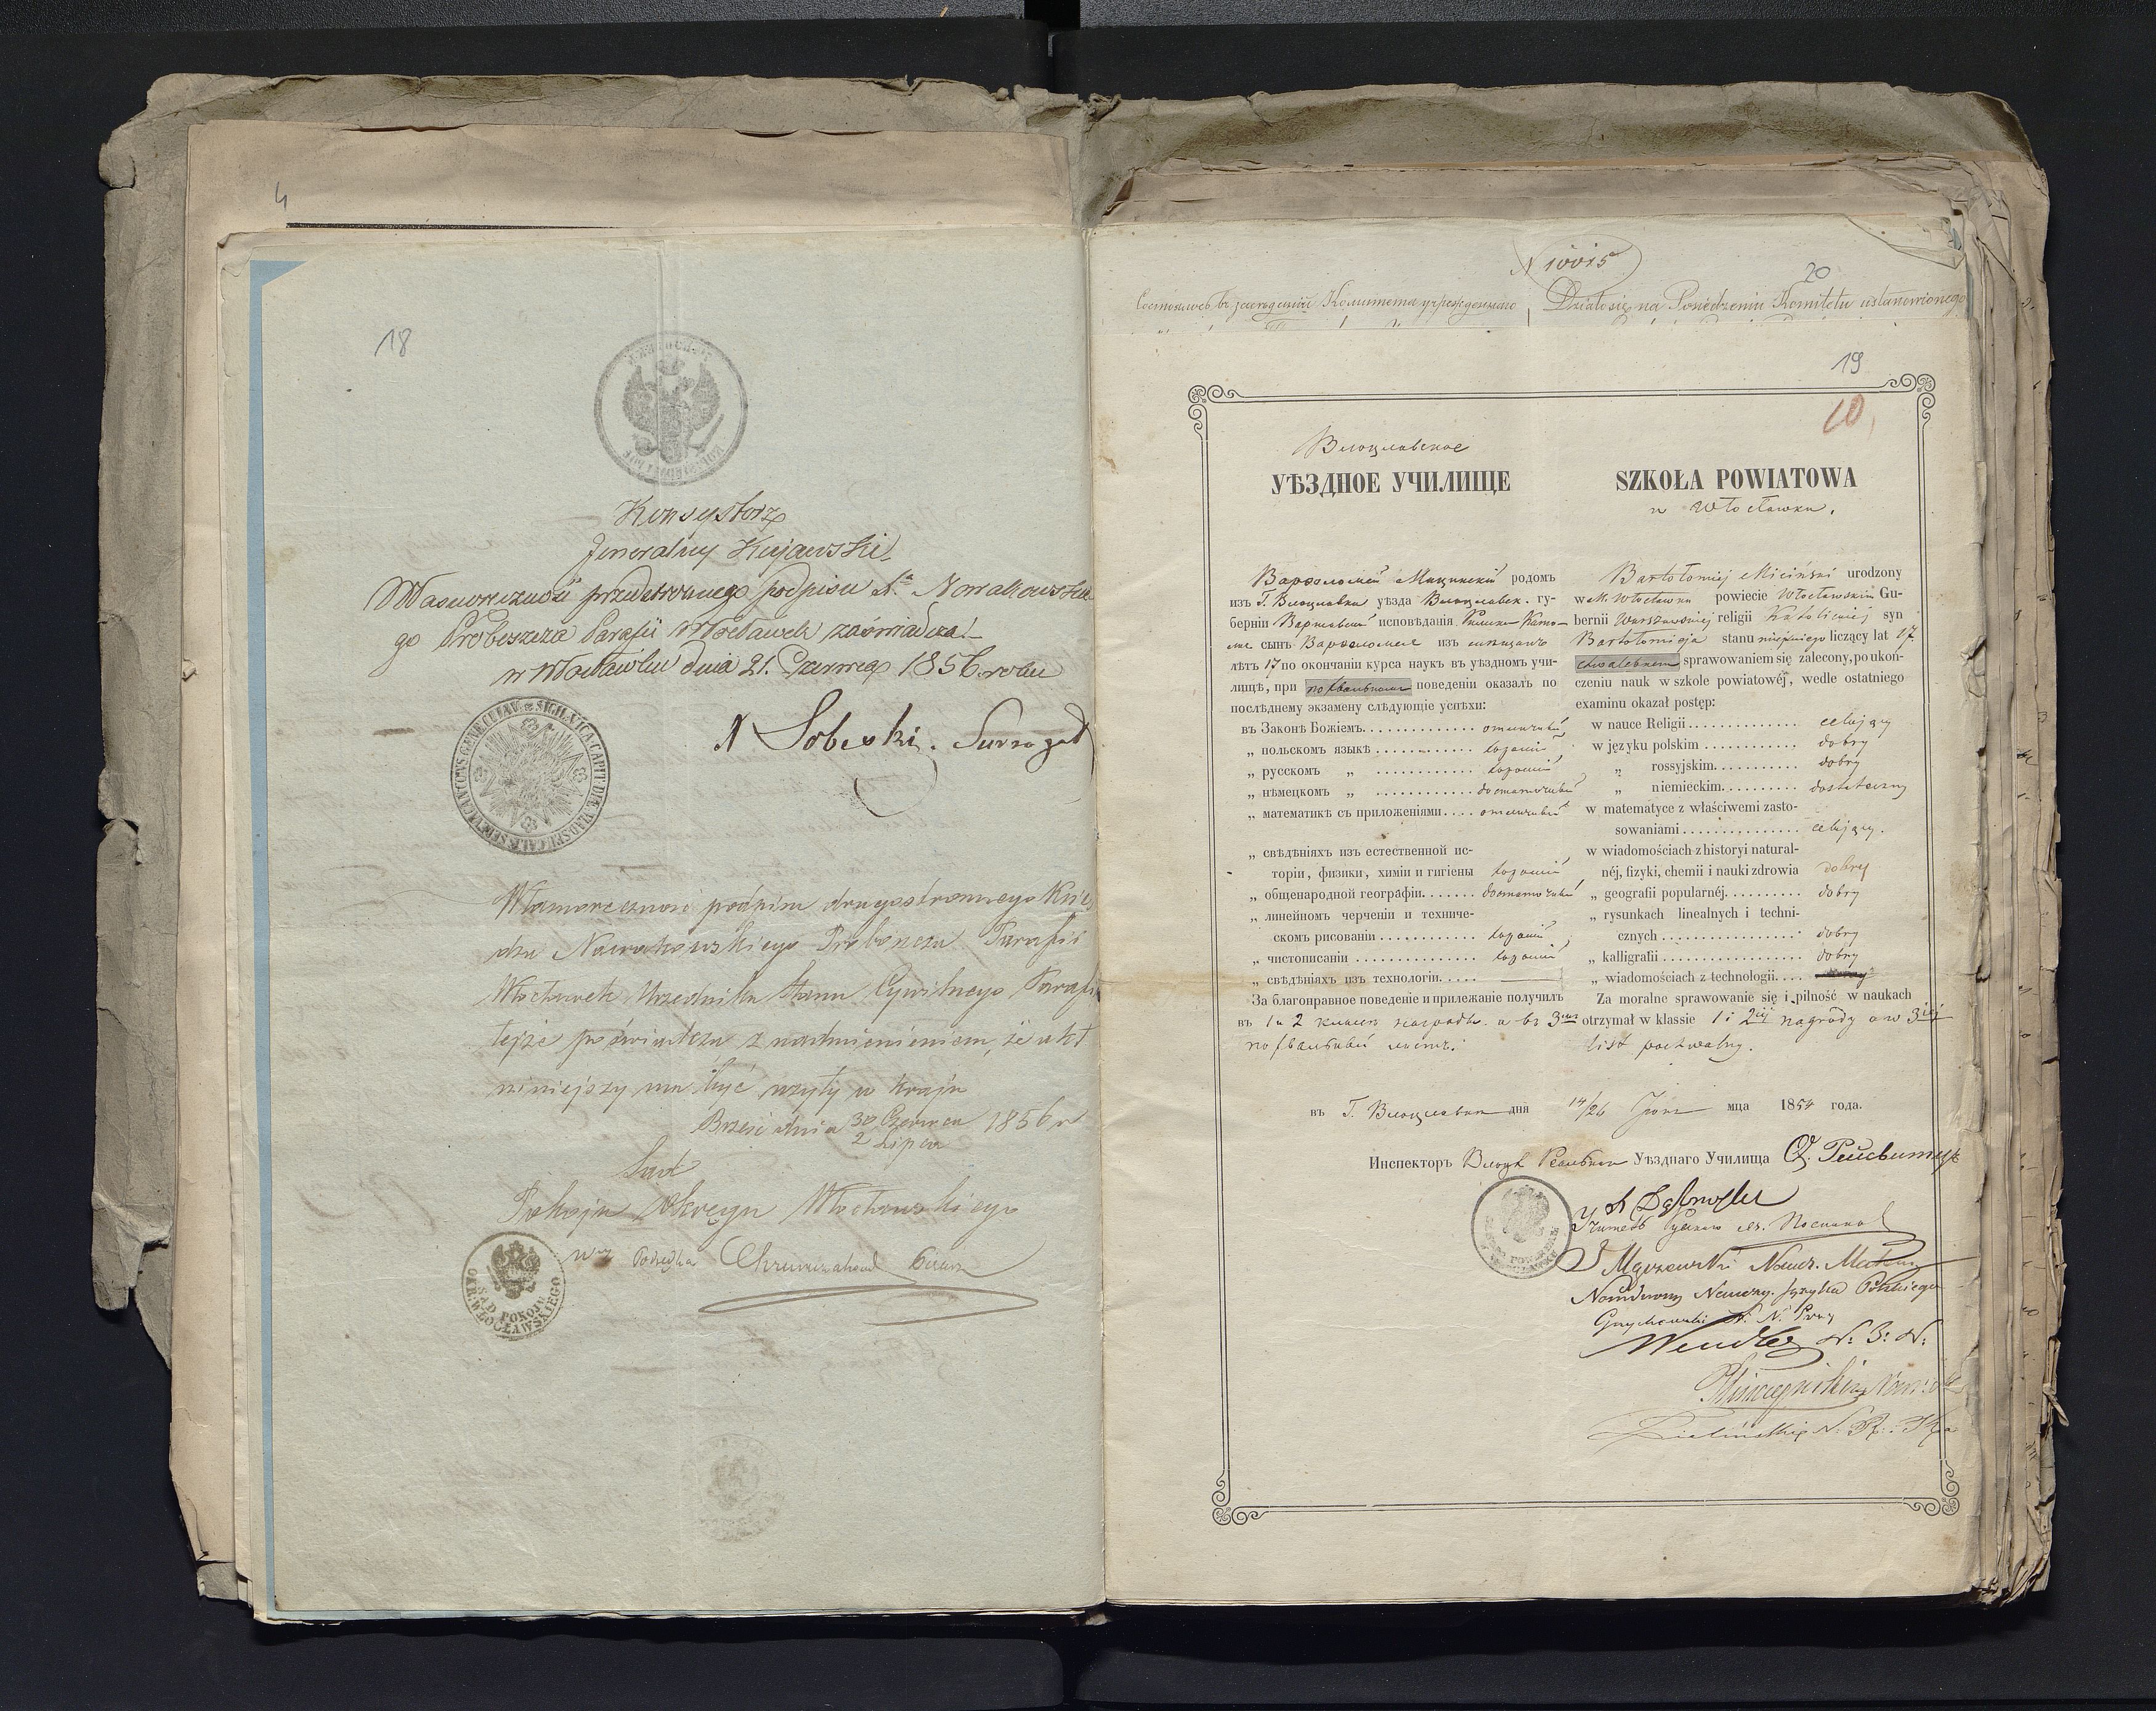 4
18
Konsystorz
Jeneralny Kujawski
Własnoręczność przedstronnego podpisu X. Nowakowskie
go Proboszcza Parafii Włocławek zaświadcza!
w Włocławku dnia 21. Czerwca 1856 roku
Sobeski. Surrogat
Własnoręczność podpisu drugostronnego Księ
dza Nowakowskiego Proboszcza Parafii
Włocławek Urzędnika Stanu Cywilnego Parafii
tejże poświadcza z nadmienieniem, że akt
niniejszy ma być użyty w kraju
Brześć dnia 30 Czerwca
2 Lipca 1856 r
Sąd
Pokoju Okręgu Włocławskiego
w z Podsędka
SĄD POKOJU
OKR. WŁOCŁAWSKIEGO
N 10015
20
Состоялось въ засѣданіи Комитета учрежденнаго
Działo się na Posiedzeniu Komitetu ustanowionego
19
10
Влоцлавское
УѢЗДНОЕ УЧИЛИЩЕ
Варѳоломей Мицинскій родомъ
изъ Г. Влоцлавка уѣзда Влоцлавск. гу-
берніи Варшавской исповѣданія Римско-Като-
лич сынъ Варѳоломея изъ мѣщанъ
лѣтъ 17 по окончаніи курса наукъ въ уѣздномъ учи-
лищѣ, при похвальномъ поведеніи оказалъ по
послѣднему экзамену слѣдующіе успѣхи:
въ Законѣ Божіемъ. . . . . . . . . . . . отличный
„ польскомъ языкѣ . . . . . . . . . . . хорошій
„ русскомъ „ . . . . . . . . . . . . хорошій
„ нѣмецкомъ „ . . . . . . . . . . . . достаточный
„ математикѣ съ приложеніями . . . . отличный
„ свѣдѣніяхъ изъ естественной ис-
торіи, физики, химіи и гигіены хорошій
„ общенародной географіи. . . . . . . достаточный
„ линейномъ черченіи и техниче-
скомъ рисованіи . . . . . . . . . . . . хорошій
„ чистописаніи . . . . . . . . . . . . . . . хорошій
„ свѣдѣніяхъ изъ технологіи. . . . . —
За благонравное поведеніе и прилежаніе получилъ
въ 1 и 2 классѣ награды а въ 3мъ
похвальный листъ.
SZKOŁA POWIATOWA
w Włocławku.
Bartołomiej Miciński urodzony
w M. Włocławku powiecie Włocławskim Gu-
bernii Warszawskiej religii Katolickiej syn
Bartołomieja stanu miejskiego liczący lat 17.
chwalebnem sprawowaniem się zalecony, po ukoń-
czeniu nauk w szkole powiatowéj, wedle ostatniego
examinu okazał postęp:
w nauce Religii . . . . . . . . . . . . . . . celujący
w języku polskim . . . . . . . . . . . . dobry
„ rossyjskim. . . . . . . . . . . dobry
„ niemieckim. . . . . . . . . . dostateczny
w matematyce z właściwemi zasto-
sowaniami . . . . . . . . . . . . . . . celujący.
w wiadomościach z historyi natural-
néj, fizyki, chemii i nauki zdrowia dobry
„ geografii popularnéj. . . . . . . . . . dobry
„ rysunkach linealnych i techni-
cznych . . . . . . . . . . . . . . . . . . dobry
„ kalligrafii . . . . . . . . . . . . . . . . . . dobry
„ wiadomościach z technologii. . . .
Za moralne sprawowanie się i pilność w naukach
otrzymał w klassie 1 i 2iéj nagrody a w 3iéj
list pochwalny.
въ Г. Влоцлавкѣ дня 14/26 Іюня мца 1854 года.
Инспекторъ Влоцл Реальнаго Уѣзднаго Училища
Учитель Русскаго яз.
Mączewski Naucz. Matem
Naucz. Języka Polskiego